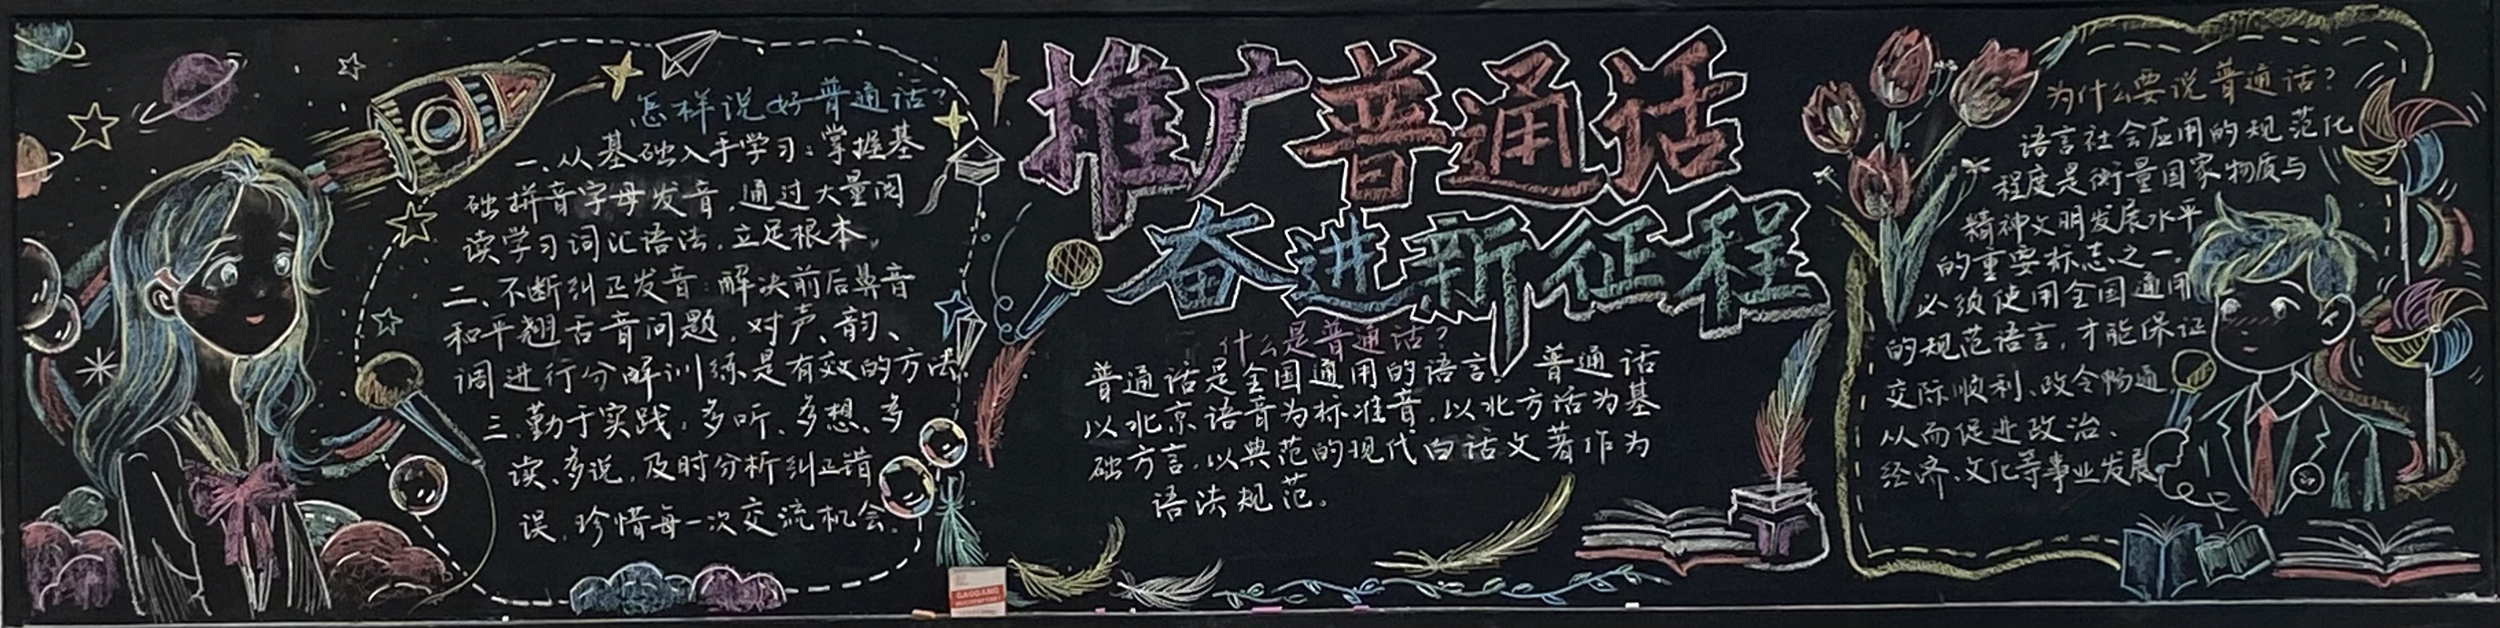 怎样说好普通话?
一、从基础入手学习:掌握基
础拼音字母发音,通过大量阅
读学习词汇语法,立足根本。
二、不断纠正发音:解决前后鼻音
和平翘舌音问题,对声、韵、
调进行分解训练是有效的方法。
三、勤于实践,多听、多想、多
读、多说,及时分析纠正错
误,珍惜每一次交流机会。
推广普通话
奋进新征程
什么是普通话?
普通话是全国通用的语言。普通话
以北京语音为标准音,以北方话为基
础方言,以典范的现代白话文著作为
语法规范。
为什么要说普通话?
语言社会应用的规范化
程度是衡量国家物质与
精神文明发展水平
的重要标志之一。
必须使用全国通用
的规范语言,才能保证
交际顺利、政令畅通,
从而促进政治、
经济、文化等事业发展
GAOGANG